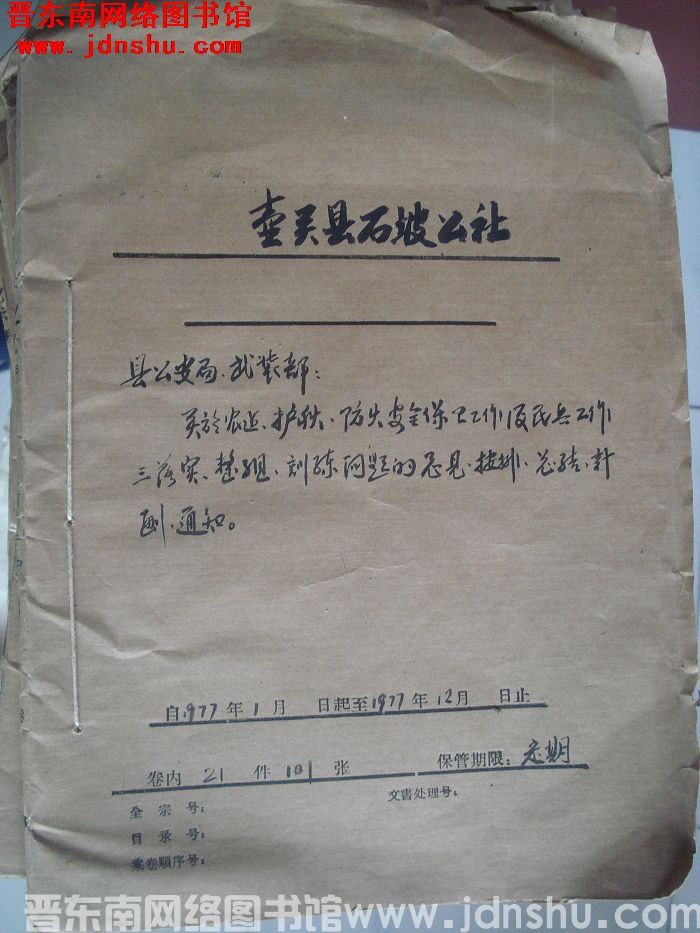 晋东南网络图书馆
www.jdnshu.com
壶关县石坡公社
县公安局、武装部:
关于农近、护秋、防火安全保卫工作及民兵工作
三落实、整组、训练问题的意见、按排、总结、计
划、通知。
自1977年1月 日起至1977年12月 日止
卷内 21 件 101 张 保管期限: 定期
全宗号: 文書处理号:
目录号:
案卷順序号:
晋东南网络图书馆 www.jdnshu.com